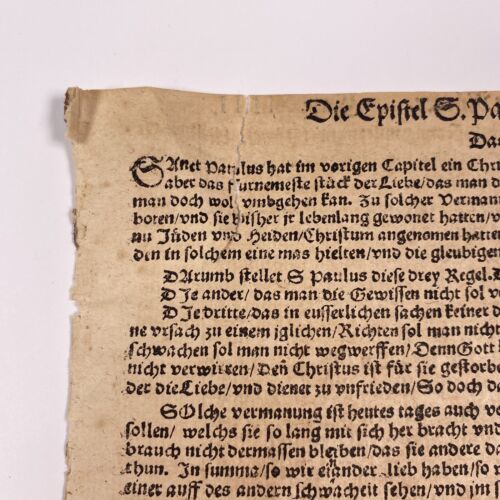 Die Epistel S. Pa
Das
SAnct Paulus hat im vorigen Capitel ein Chri
aber das furnemeste stück der Liebe/das man d
man doch wol vmbgehen kan. Zu solcher Verman
boten/vnd sie bisher jr lebenlang gewonet hatten/v
nu Jüden vnd Heiden/Christum angenomen hatte
den in solchem eine mas hielten/vnd die gleubigen
DArumb stellet S Paulus diese drey Regel. D
DJe ander/das man die Gewissen nicht sol v
DJe dritte/das in eusserlichen sachen keiner d
ne vrsach zu einem jglichen/Richten sol man nicht
schwachen sol man nicht wegwerffen/DennGott
nicht verwirren/Deñ Christus ist für sie gestorbe
der dieLiebe/vnd dienet zu vnfrieden/So doch d
SOlche vermanung ist heutes tages auch vo
sollen/welchs sie so lang mit sich her bracht vnd
brauch nicht dermassen bleiben/das sie andere da
thun. In summa/so wir einander lieb haben/so
einer auff des andern schwacheit sehen/vnd jm